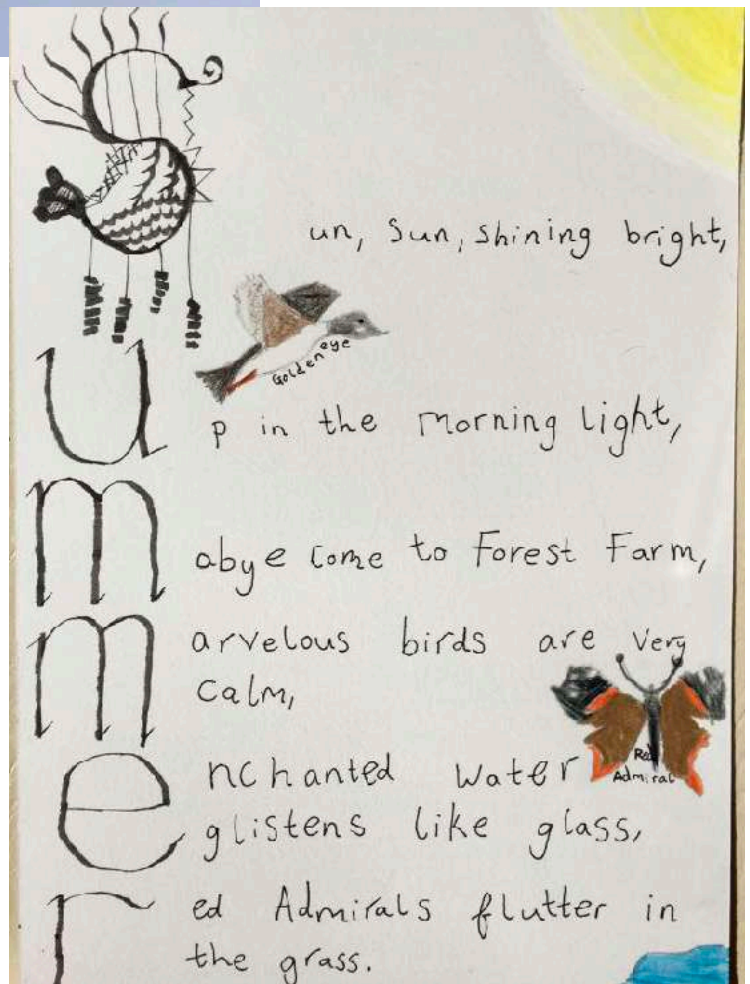 Sun, Sun, shining bright,
Goldeneye
up in the morning light,
mabye come to Forest Farm,
marvelous birds are very
calm,
Red
Admiral
enchanted water
glistens like glass,
red Admirals flutter in
the grass.